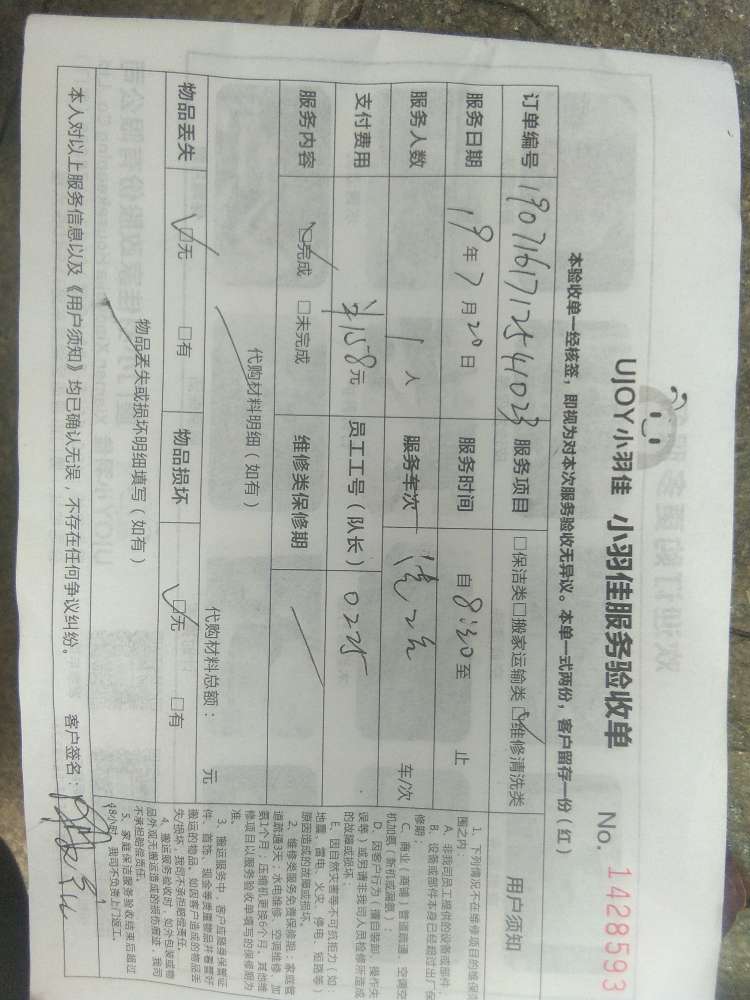 UJOY小羽佳 小羽佳服务验收单
No. 1428593
本验收单一经核签，即视为对本次服务验收无异议。本单一式两份，客户留存一份（红）
订单编号 19071617125441023 服务项目 □保洁类□搬家运输类☑维修清洗类
服务日期 19年7月20日 服务时间 自8:30至 止
服务人数 1人 服务车次 洗2台 车/次
支付费用 ¥158元 员工工号（队长） 0275
服务内容 ☑完成 □未完成 维修类保修期
代购材料明细（如有） 代购材料总额： 元
物品丢失 ☑无 □有 物品损坏 ☑无 □有
物品丢失或损坏明细填写（如有）
本人对以上服务信息以及《用户须知》均已确认无误，不存在任何争议纠纷。 客户签名：
用户须知
1、下列情况不在维修项目的维保范
围之内：
A、非我司员工提供的设备或部件；
B、设备或部件本身已经超过出厂保
修期
C、商业（商铺）管道疏通、空调空
机加氨（新机或漏氨）；
D、因客户行为（擅自装卸、操作失
误等）或另请非我司人员检修所造成
的故障或损坏；
E、因自然灾害等不可抗拒力（如：
地震、雷电、火灾、停电、短路等）
原因造成的故障或损坏。
2、维修类服务免责保修期：家庭管
道疏通3天；水电维修、空调维修、加
氨1个月；压缩机更换6个月，其他维
修项目以服务验收单填写的保修期为
准。
3、搬运服务中，客户应随身保管证
件、首饰、现金等贵重物品并看管好
搬运的物品。如因客户造成的物品丢
失/损坏，我司不承担赔偿责任。
4、搬运服务验收时，如外包装或物
品外观无搬运造成的损伤痕迹，我司
不承担赔偿责任。
5、家庭保洁服务验收结束后超过
48小时，我司不负责上门返工。